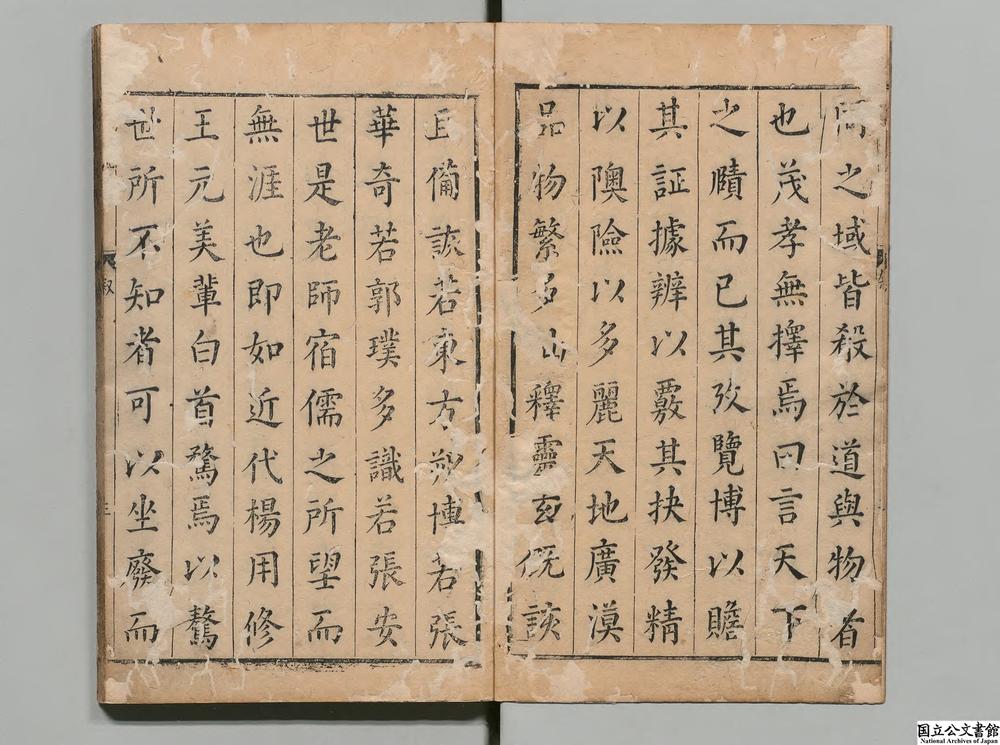 之域皆殺於道與物者
也茂孝無擇焉曰言天下
之賾而已其攷覽博以贍
其証據辨以覈其抉發精
以隩險以多麗天地廣漠
品物繁多山釋靈玄既詼
且備詼若東方朔博若張
華奇若郭璞多識若張安
世是老師宿儒之所朢而
無涯也即如近代楊用修
王元美輩白首騖焉以驁
世所不知者可以坐廢而
叙
三
国立公文書館
National Archives of Japan